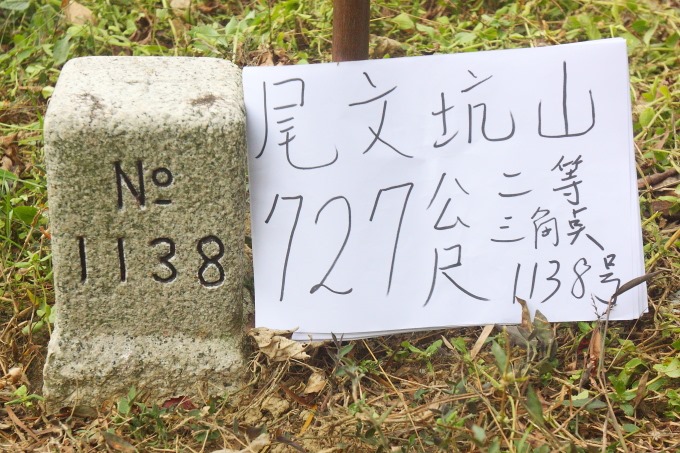 No
1138
尾文坑山
727公尺
二等
三角点
1138号